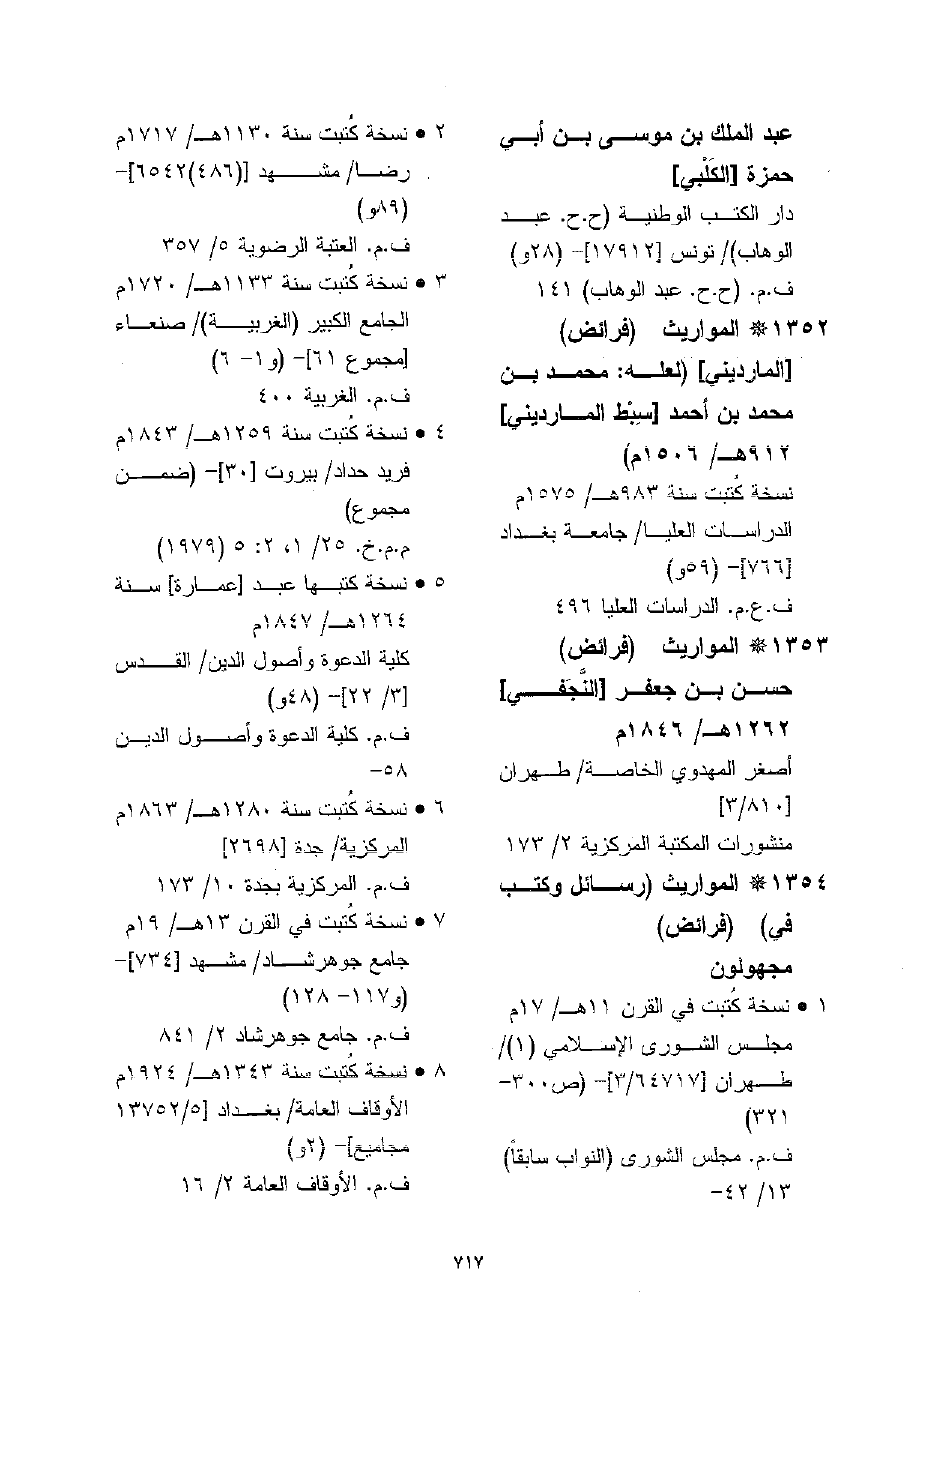 عبد الملك بن موسى بن أبي
حمزة [الكَلْبي]
دار الكتب الوطنية (ح.ح. عبد
الوهاب)/ تونس [١٧٩١٢]– (٢٨و)
ف.م. (ح.ح. عبد الوهاب) ١٤١
١٣٥٢* المواريث (فرائض)
[المارديني] (لعله: محمد بن
محمد بن أحمد [سِبْط المارديني]
٩١٢هـ/ ١٥٠٦م)
نسخة كُتبت سنة ٩٨٣هـ/ ١٥٧٥م
الدراسات العليا/ جامعة بغداد
[٧٦٦]– (٥٩و)
ف.ع.م. الدراسات العليا ٤٩٦
١٣٥٣* المواريث (فرائض)
حسن بن جعفر [النَّجَفي]
١٢٦٢هـ/ ١٨٤٦م
أصغر المهدوي الخاصة/ طهران
[٣/٨١٠]
منشورات المكتبة المركزية ٢/ ١٧٣
١٣٥٤* المواريث (رسائل وكتب
في) (فرائض)
مجهولون
١ • نسخة كُتبت في القرن ١١هـ/ ١٧م
مجلس الشورى الإسلامي (١)/
طهران [٣/٦٤٧١٧]– (ص٣٠٠–
٣٢١)
ف.م. مجلس الشورى (النواب سابقاً)
١٣/ ٤٢–
٢ • نسخة كُتبت سنة ١١٣٠هـ/ ١٧١٧م
رضا/ مشهد [(٤٨٦)٦٥٤٢]–
(٨٩و)
ف.م. العتبة الرضوية ٥/ ٣٥٧
٣ • نسخة كُتبت سنة ١١٣٣هـ/ ١٧٢٠م
الجامع الكبير (الغربية)/ صنعاء
[مجموع ٦١]– (و١– ٦)
ف.م. الغربية ٤٠٠
٤ • نسخة كُتبت سنة ١٢٥٩هـ/ ١٨٤٣م
فريد حداد/ بيروت [٣٠]– (ضمن
مجموع)
م.م.خ. ٢٥/ ١، ٢: ٥ (١٩٧٩)
٥ • نسخة كتبها عبد [عمارة] سنة
١٢٦٤هـ/ ١٨٤٧م
كلية الدعوة وأصول الدين/ القدس
[٣/ ٢٢]– (٤٨و)
ف.م. كلية الدعوة وأصول الدين
٥٨–
٦ • نسخة كُتبت سنة ١٢٨٠هـ/ ١٨٦٣م
المركزية/ جدة [٢٦٩٨]
ف.م. المركزية بجدة ١٠/ ١٧٣
٧ • نسخة كُتبت في القرن ١٣هـ/ ١٩م
جامع جوهرشاد/ مشهد [٧٣٤]–
(و١١٧– ١٢٨)
ف.م. جامع جوهرشاد ٢/ ٨٤١
٨ • نسخة كُتبت سنة ١٣٤٣هـ/ ١٩٢٤م
الأوقاف العامة/ بغداد [١٣٧٥٢/٥
مجاميع]– (٢و)
ف.م. الأوقاف العامة ٢/ ١٦
٧١٧